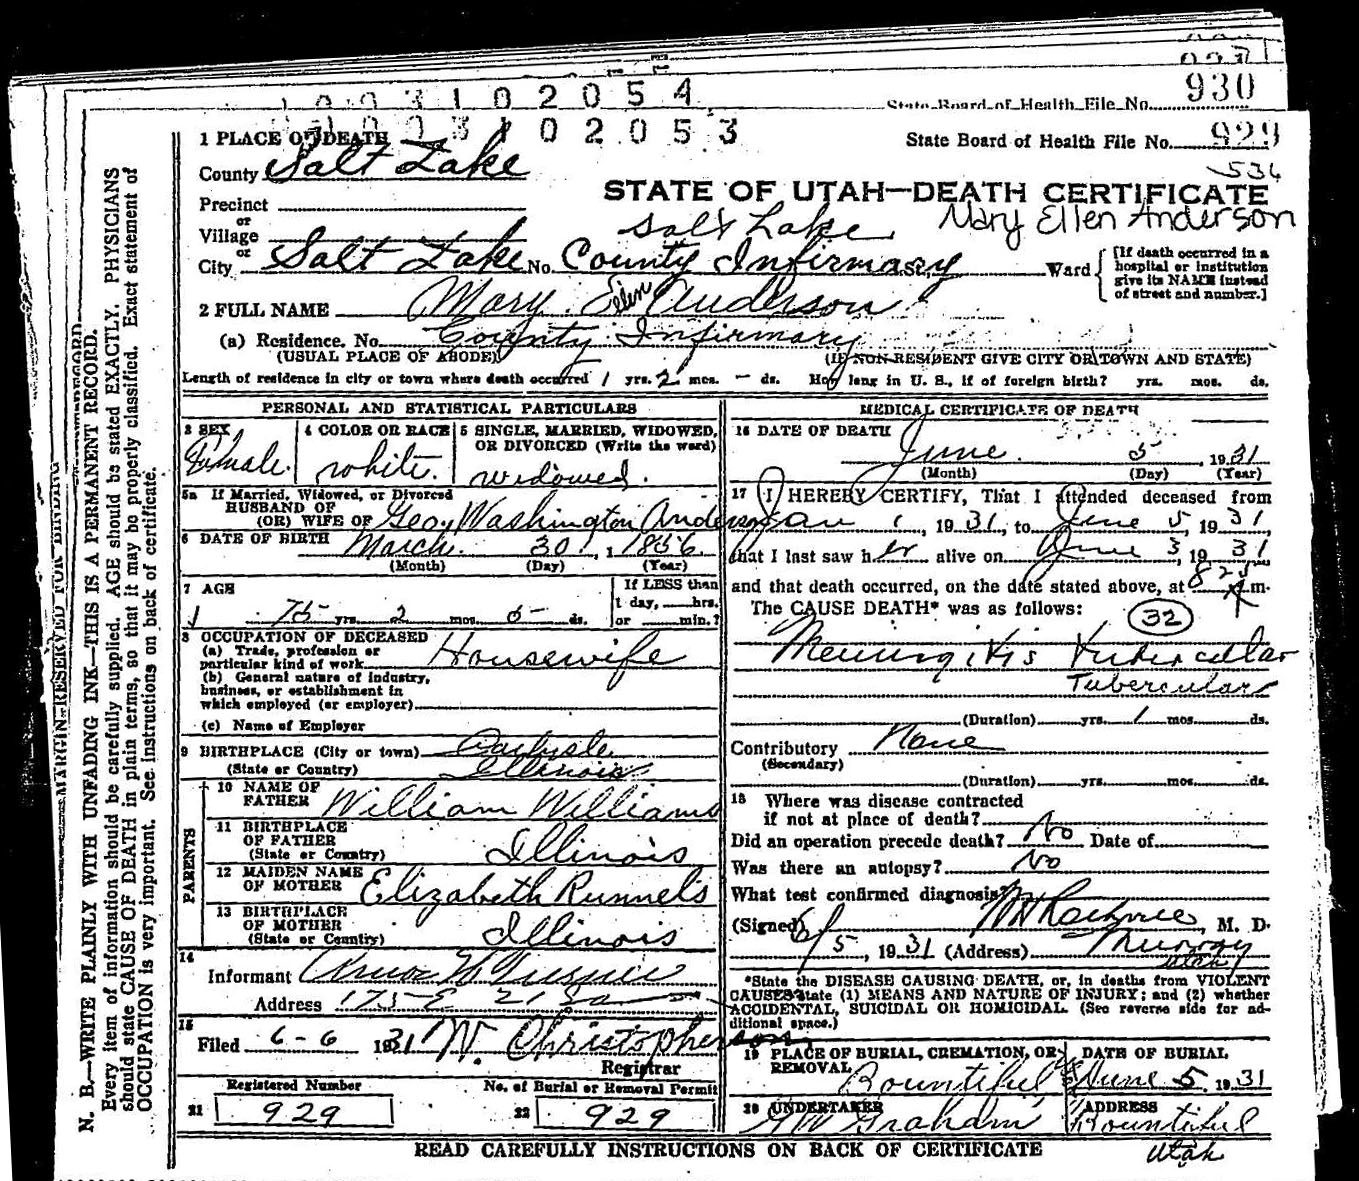 930
State Board of Health File No.
1003102054
1003102053
State Board of Health File No. 929
536
1 PLACE OF DEATH
County Salt Lake
STATE OF UTAH—DEATH CERTIFICATE
Mary Ellen Anderson
Precinct
or
Village
or
City Salt Lake No. Salt Lake County Infirmary St., Ward
[If death occurred in a hospital or institution give its NAME instead of street and number.]
2 FULL NAME Mary Ellen Anderson
(a) Residence. No. County Infirmary
(USUAL PLACE OF ABODE) (IF NON-RESIDENT GIVE CITY OR TOWN AND STATE)
Length of residence in city or town where death occurred 1 yrs. 2 mos. - ds. How long in U. S., if of foreign birth? yrs. mos. ds.
PERSONAL AND STATISTICAL PARTICULARS
3 SEX Female.
4 COLOR OR RACE white.
5 SINGLE, MARRIED, WIDOWED, OR DIVORCED (Write the word) widowed.
5a If Married, Widowed, or Divorced
HUSBAND OF
(OR) WIFE OF Geo. Washington Anderson
6 DATE OF BIRTH March 30, 1856
(Month) (Day) (Year)
7 AGE 75 yrs. 2 mos. 5 ds.
If LESS than 1 day, hrs. or min.?
8 OCCUPATION OF DECEASED
(a) Trade, profession or particular kind of work Housewife
(b) General nature of industry, business, or establishment in which employed (or employer)
(c) Name of Employer
9 BIRTHPLACE (City or town) Carlysle
(State or Country) Illinois
PARENTS
10 NAME OF FATHER William Williams
11 BIRTHPLACE OF FATHER (State or Country) Illinois
12 MAIDEN NAME OF MOTHER Elizabeth Runnels
13 BIRTHPLACE OF MOTHER (State or Country) Illinois
14
Informant
Address 175 E 21 So
15
Filed 6-6 1931 W. Christopherson
Registrar
Registered Number
21 929
No. of Burial or Removal Permit
22 929
MEDICAL CERTIFICATE OF DEATH
16 DATE OF DEATH
June 5, 1931
(Month) (Day) (Year)
17 I HEREBY CERTIFY, That I attended deceased from
Jan 1, 1931, to June 5, 1931,
that I last saw her alive on June 3, 1931
and that death occurred, on the date stated above, at m.
The CAUSE DEATH* was as follows:
32
Meningitis Tubercular
Tubercular
(Duration) yrs. 1 mos. ds.
Contributory None
(Secondary)
(Duration) yrs. mos. ds.
18 Where was disease contracted
if not at place of death?
Did an operation precede death? No Date of
Was there an autopsy? No
What test confirmed diagnosis?
(Signed) , M. D.
6/5, 1931 (Address) Murray
Utah
*State the DISEASE CAUSING DEATH, or, in deaths from VIOLENT
CAUSES state (1) MEANS AND NATURE OF INJURY; and (2) whether
ACCIDENTAL, SUICIDAL OR HOMICIDAL. (See reverse side for ad-
ditional space.)
19 PLACE OF BURIAL, CREMATION, OR REMOVAL Bountiful
DATE OF BURIAL June 5, 1931
20 UNDERTAKER Graham
ADDRESS Bountiful
Utah
READ CAREFULLY INSTRUCTIONS ON BACK OF CERTIFICATE
MARGIN RESERVED FOR BINDING
N. B.—WRITE PLAINLY WITH UNFADING INK—THIS IS A PERMANENT RECORD.
Every item of information should be carefully supplied. AGE should be stated EXACTLY. PHYSICIANS
should state CAUSE OF DEATH in plain terms, so that it may be properly classified. Exact statement of
OCCUPATION is very important. See instructions on back of certificate.